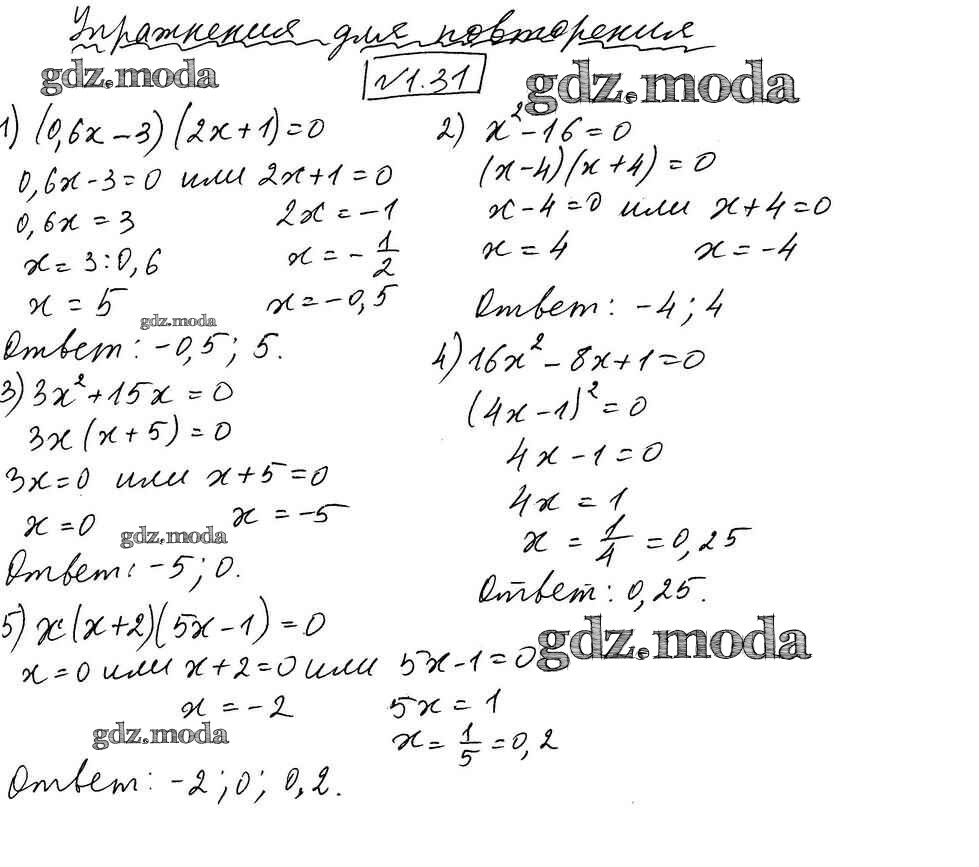 Упражнения для повторения
gdz.moda
№1.31
gdz.moda
1) (0,6x-3)(2x+1)=0
0,6x-3=0 или 2x+1=0
0,6x=3 2x=-1
x=3:0,6 x=-1/2
x=5 x=-0,5
gdz.moda
Ответ: -0,5; 5.
2) x²-16=0
(x-4)(x+4)=0
x-4=0 или x+4=0
x=4 x=-4
Ответ: -4; 4
3) 3x²+15x=0
3x(x+5)=0
3x=0 или x+5=0
x=0 x=-5
gdz.moda
Ответ: -5; 0.
4) 16x²-8x+1=0
(4x-1)²=0
4x-1=0
4x=1
x=1/4=0,25
Ответ: 0,25.
gdz.moda
5) x(x+2)(5x-1)=0
x=0 или x+2=0 или 5x-1=0
x=-2 5x=1
gdz.moda
x=1/5=0,2
Ответ: -2; 0; 0,2.